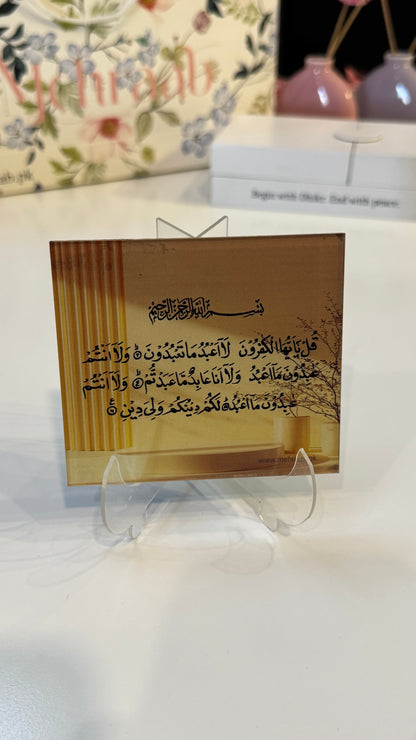 Mehraab
Begin with Dhikr. End with peace.
بسم الله الرحمن الرحيم
قُلْ يٰۤاَيُّهَا الْكٰفِرُوْنَ لَاۤ اَعْبُدُ مَا تَعْبُدُوْنَ ۙ وَلَاۤ اَنْتُمْ
عٰبِدُوْنَ مَاۤ اَعْبُدُ وَلَاۤ اَنَا عَابِدٌ مَّا عَبَدْتُّمْ ۙ وَلَاۤ اَنْتُمْ
عٰبِدُوْنَ مَاۤ اَعْبُدُ لَكُمْ دِيْنُكُمْ وَلِىَ دِيْنِ